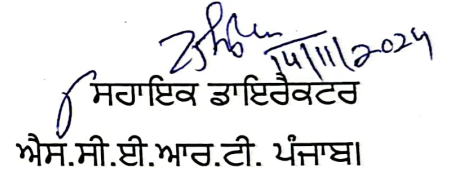 14/11/2024
ਸਹਾਇਕ ਡਾਇਰੈਕਟਰ
ਐਸ.ਸੀ.ਈ.ਆਰ.ਟੀ. ਪੰਜਾਬ।